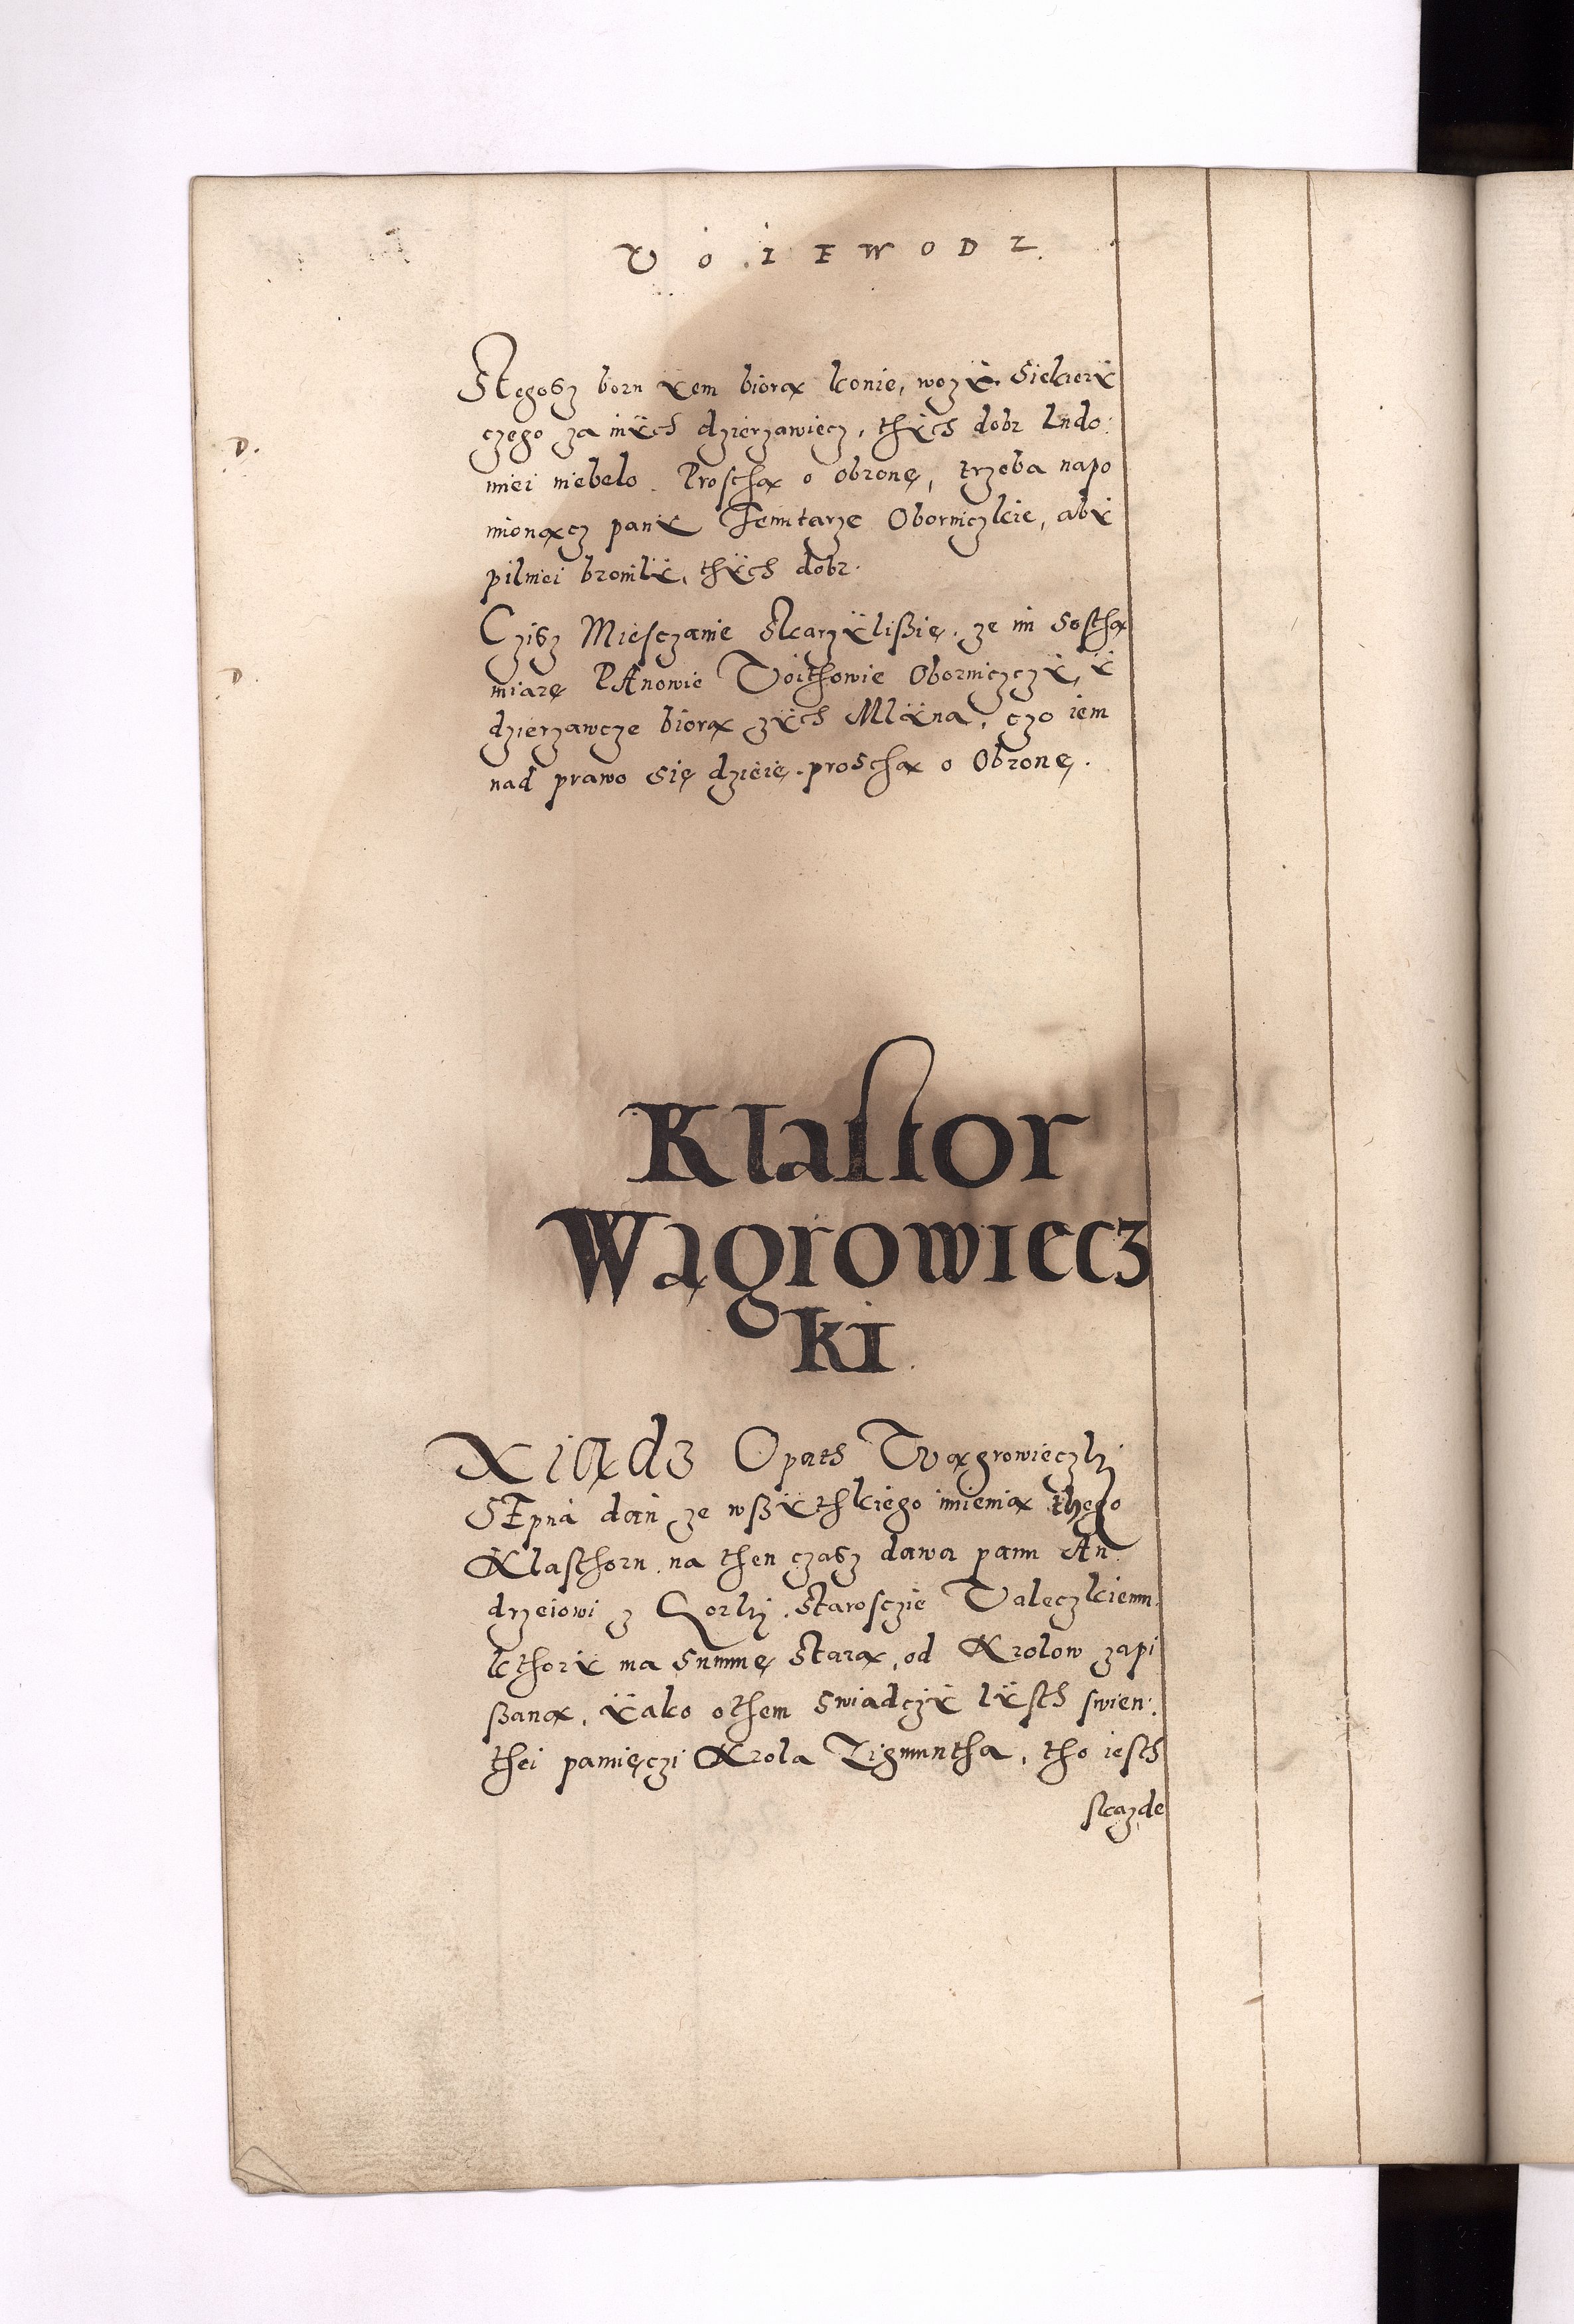 VOIEWODZ.
Stegosz boru ẏem biorą konie, wozẏ. Siekierẏ
czego za inẏch dzierzawiecz, thẏch dobr ludo:
D.
wiei niebeło. Proschą o obronę, trzeba napo
mionącz panẏ Oborniczkie, abẏ
pilniei bronilẏ, thẏch dobr.
Czisz Miesczanie Skarzẏlißie. ze im Sosthą
D.
miarę PAnowie Voithowie Oborniczczẏ, ẏ
dzierzawcze biorą zẏch Mlẏna, czo iem
nad prawo się dzieie. proschą o Obronę.
Klastor
Wągrowiecz
ki.
Xiądz Opath Wągrowieczki
STpna dan ze wßẏthkiego imienia thego
Klasthoru. na then czasz dawa panu An
drzeiowi z Gorki. Starosczie Valeczkiemu.
kthorẏ ma Summę Starą, od Krolow zapi
ßaną, ẏako othem Swiadczẏ lẏsth swien:
thei pamięczi Krola Zigmuntha, tho iesth
skazde